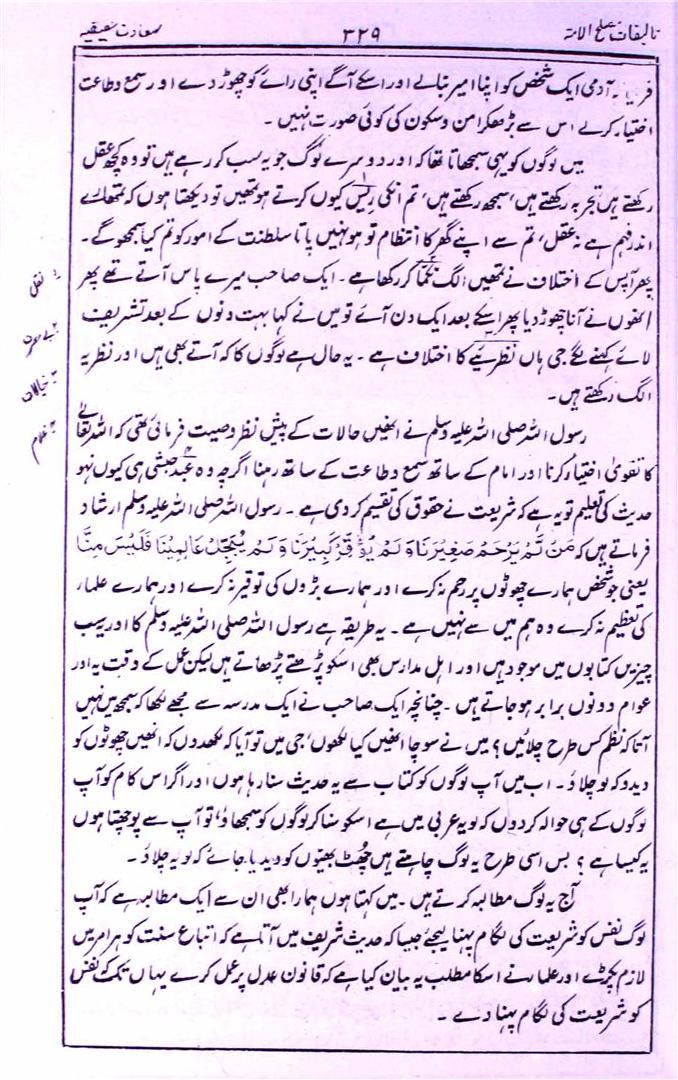 تالیفات مصلح الامۃ ۳۲۹ سعادت حقیقیہ
آدمی ایک شخص کو اپنا امیر بنالے اور اسکے آگے اپنی رائے کو چھوڑ دے اور سمع وطاعت
اختیار کرلے اس سے بڑھکر امن و سکون کی کوئی صورت نہیں ۔
میں لوگوں کو یہی سمجھاتا تھا کہ اور دوسرے لوگ جو یہ سب کر رہے ہیں تو وہ کچھ عقل
رکھتے ہیں تجربہ رکھتے ہیں، سمجھ رکھتے ہیں، تم انکی ریس کیوں کرتے ہو تمھیں تو دیکھتا ہوں کہ تمھارے
اندر فہم ہے نہ عقل، تم سے اپنے گھر کا انتظام تو ہو نہیں پاتا سلطنت کے امور کو تم کیا سمجھو گے ۔
پھر آپس کے اختلاف نے تمھیں الگ نکما کر رکھا ہے ۔ ایک صاحب میرے پاس آتے تھے پھر
انھوں نے آنا چھوڑ دیا پھر اسکے بعد ایک دن آئے تو میں نے کہا بہت دنوں کے بعد تشریف
لائے کہنے لگے جی ہاں نظریئے کا اختلاف ہے ۔ یہ حال ہے لوگوں کا کہ آتے بھی ہیں اور نظریہ
الگ رکھتے ہیں ۔
رسول اللہ صلی اللہ علیہ وسلم نے انھیں حالات کے پیش نظر وصیت فرمائی تھی کہ اللہ تعالیٰ
کا تقویٰ اختیار کرنا اور امام کے ساتھ سمع وطاعت کے ساتھ رہنا اگرچہ وہ عبد حبشی ہی کیوں نہو
حدیث کی تعلیم تو یہ ہے کہ شریعت نے حقوق کی تقسیم کر دی ہے ۔ رسول اللہ صلی اللہ علیہ وسلم ارشاد
فرماتے ہیں کہ مَنْ لَّمْ یَرْحَمْ صَغِیْرَنَا وَلَمْ یُؤَقِّرْ کَبِیْرَنَا وَلَمْ یُبَجِّلْ عَالِمِیْنَا فَلَیْسَ مِنَّا
یعنی جو شخص ہمارے چھوٹوں پر رحم نہ کرے اور ہمارے بڑوں کی توقیر نہ کرے اور ہمارے علماء
کی تعظیم نہ کرے وہ ہم میں سے نہیں ہے ۔ یہ طریقہ ہے رسول اللہ صلی اللہ علیہ وسلم کا اور یہ سب
چیزیں کتابوں میں موجود ہیں اور اہل مدارس بھی اسکو پڑھتے پڑھاتے ہیں لیکن عمل کے وقت یہ اور
عوام دونوں برابر ہو جاتے ہیں ۔ چنانچہ ایک صاحب نے ایک مدرسہ سے مجھے لکھا کہ سمجھ میں نہیں
آتا کہ نظم کس طرح چلائیں؟ میں نے سوچا انھیں کیا لکھوں، جی میں تو آیا کہ لکھدوں کہ انھیں چھوٹوں کو
دیدو کہ لو چلاؤ ۔ اب میں آپ لوگوں کو کتاب سے یہ حدیث سنا رہا ہوں اور اگر اس کام کو آپ
لوگوں کے ہی حوالہ کر دوں کہ لو یہ عربی میں ہے اسکو سنا کر لوگوں کو سمجھاؤ، تو آپ سے پوچھتا ہوں
یہ کیسا ہے؟ بس اسی طرح یہ لوگ چاہتے ہیں چھٹ بھیوں کو دیدیا جائے کہ لو یہ چلاؤ ۔
آج یہ لوگ مطالبہ کرتے ہیں ۔ میں کہتا ہوں ہمارا بھی ان سے ایک مطالبہ ہے کہ آپ
لوگ نفس کو شریعت کی لگام پہنا لیجئے جیسا کہ حدیث شریف میں آتا ہے کہ اتباع سنت کو ہر امر میں
لازم پکڑے اور علماء نے اسکا مطلب یہ بیان کیا ہے کہ قانون عدل پر عمل کرے یہاں تک کہ نفس
کو شریعت کی لگام پہنا دے ۔
نقل
خیالات
غلام